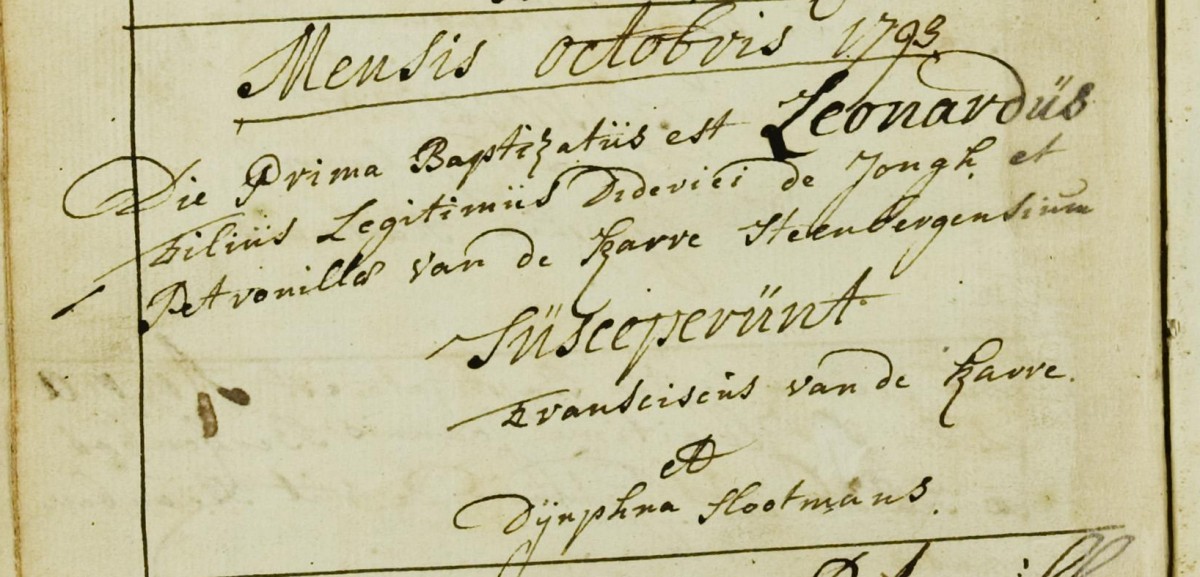 Mensis octobris 1793
Die Prima Baptizatüs est Leonardüs
Filiüs Legitimüs Diderici de Jongh et
Petronillæ van de Karre Steenbergensium
Süsceperünt
Fransciscüs van de Karre.
et
Dÿnphna Slootmans.